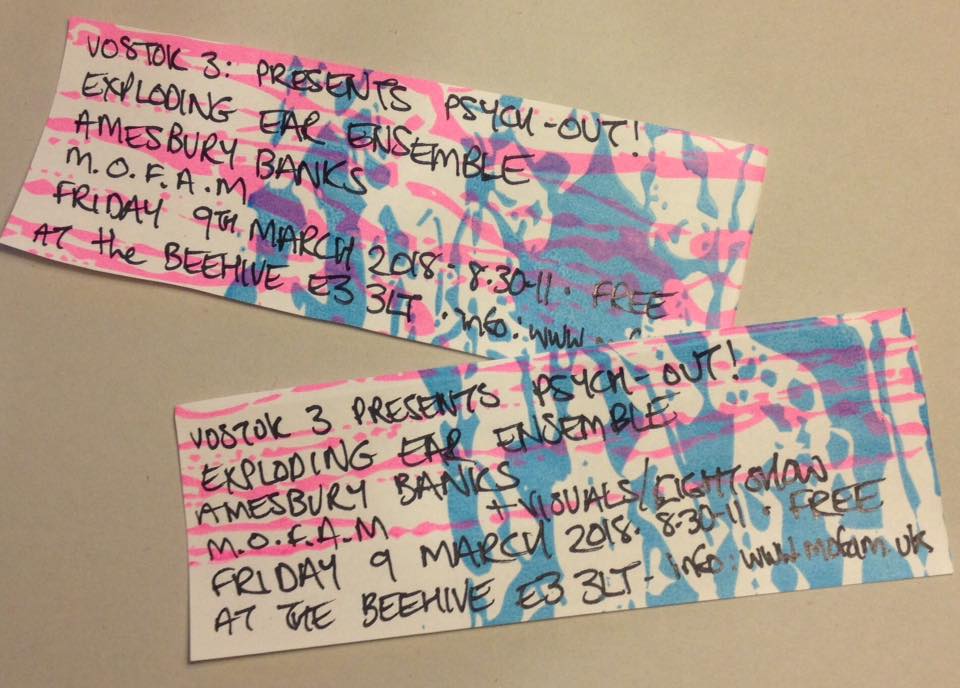 VOSTOK 3: PRESENTS PSYCH-OUT!
EXPLODING EAR ENSEMBLE
AMESBURY BANKS
M.O.F.A.M
FRIDAY 9TH MARCH 2018 · 8.30-11 · FREE
AT the BEEHIVE E3 3LT · info: www.
VOSTOK 3 PRESENTS PSYCH-OUT!
EXPLODING EAR ENSEMBLE
AMESBURY BANKS
M.O.F.A.M + VISUALS/LIGHTSHOW
FRIDAY 9 MARCH 2018 · 8.30-11 · FREE
AT THE BEEHIVE E3 3LT - info: www.mofam.uk